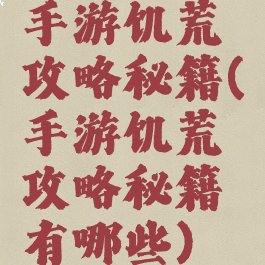 手游饥荒
攻略秘籍(
手游饥荒
攻略秘籍
有哪些)